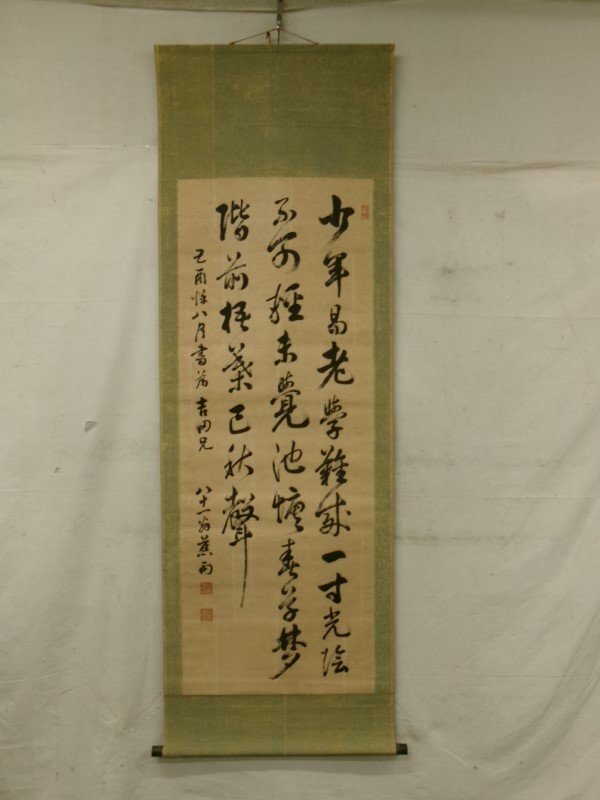 少年易老學難成一寸光陰
不可輕未覺池塘春草夢
階前梧葉已秋聲
己酉秋八月書為 吉田兄 八十一翁蕉雨